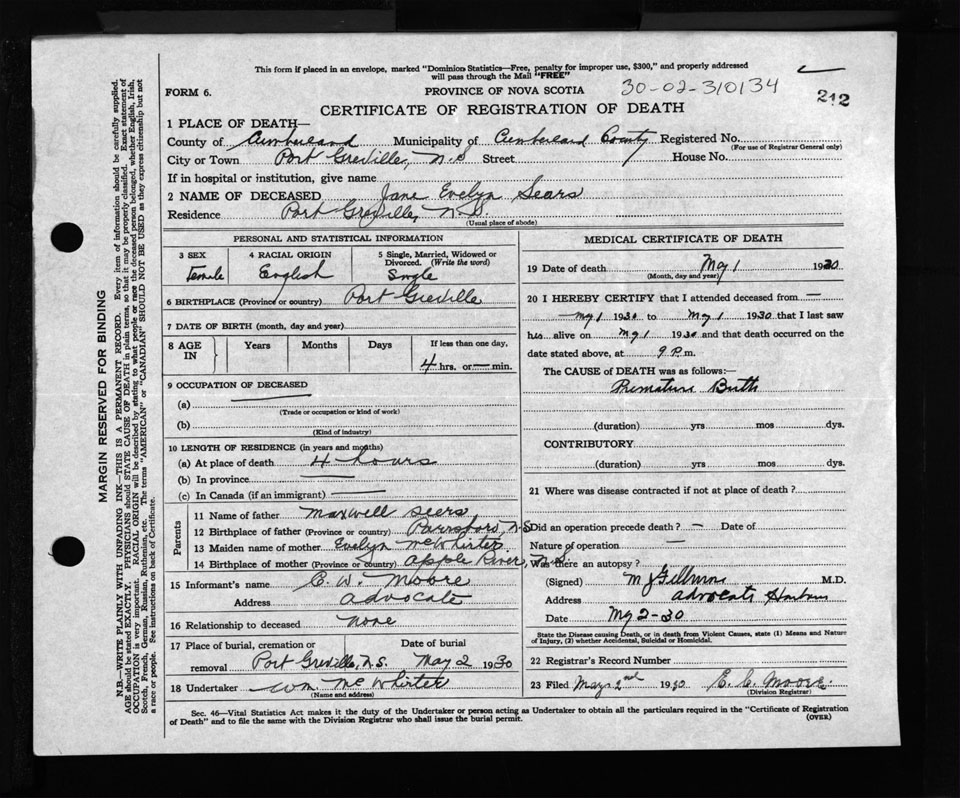 This form if placed in an envelope, marked "Dominion Statistics—Free, penalty for improper use, $300," and properly addressed
will pass through the Mail "FREE"
FORM 6.
PROVINCE OF NOVA SCOTIA
30-02-310134
212
CERTIFICATE OF REGISTRATION OF DEATH
1 PLACE OF DEATH—
County of Cumberland Municipality of Cumberland County Registered No.
(For use of Registrar General only)
City or Town Port Greville, N.S Street House No.
If in hospital or institution, give name
2 NAME OF DECEASED Jane Evelyn Sears
Residence Port Greville, N.S.
(Usual place of abode)
PERSONAL AND STATISTICAL INFORMATION
3 SEX 4 RACIAL ORIGIN 5 Single, Married, Widowed or
Divorced. (Write the word)
Female English Single
6 BIRTHPLACE (Province or country) Port Greville
7 DATE OF BIRTH (month, day and year)
8 AGE IN Years Months Days If less than one day,
4 hrs. or — min.
9 OCCUPATION OF DECEASED
(a)
(Trade or occupation or kind of work)
(b)
(Kind of industry)
10 LENGTH OF RESIDENCE (in years and months)
(a) At place of death 4 hours
(b) In province —
(c) In Canada (if an immigrant) —
Parents
11 Name of father Maxwell Sears
12 Birthplace of father (Province or country) Parrsboro, N.S
13 Maiden name of mother Evelyn McWhirter
14 Birthplace of mother (Province or country) Apple River, N.S
15 Informant's name E. W. Moore
Address Advocate
16 Relationship to deceased None
17 Place of burial, cremation or removal Date of burial
Port Greville, N.S. May 2 1930
18 Undertaker Wm. McWhirter
(Name and address)
MEDICAL CERTIFICATE OF DEATH
19 Date of death May 1 1930
(Month, day and year)
20 I HEREBY CERTIFY that I attended deceased from —
May 1 1930 to May 1 1930 that I last saw
his alive on May 1 1930 and that death occurred on the
date stated above, at 9 P.m.
The CAUSE of DEATH was as follows:—
Premature Birth
(duration) yrs mos dys.
CONTRIBUTORY
(duration) yrs mos dys.
21 Where was disease contracted if not at place of death?
Did an operation precede death? — Date of
Nature of operation —
Was there an autopsy?
(Signed) M.D.
Address Advocate Harbour
Date May 2-30
State the Disease causing Death, or in death from Violent Causes, state (1) Means and Nature
of Injury, (2) whether Accidental, Suicidal or Homicidal.
22 Registrar's Record Number
23 Filed May 2nd 1930 E. C. Moore
(Division Registrar)
Sec. 46—Vital Statistics Act makes it the duty of the Undertaker or person acting as Undertaker to obtain all the particulars required in the "Certificate of Registration
of Death" and to file the same with the Division Registrar who shall issue the burial permit.
(OVER)
MARGIN RESERVED FOR BINDING
N.B.—WRITE PLAINLY WITH UNFADING INK—THIS IS A PERMANENT RECORD. Every item of information should be carefully supplied.
AGE should be stated EXACTLY. PHYSICIANS should STATE CAUSE OF DEATH in plain terms, so that it may be properly classified. Exact statement of
OCCUPATION is very important. RACIAL ORIGIN will be described by stating to what people or race the deceased person belonged, whether English, Irish,
Scotch, French, German, Russian, Ruthenian, etc. The terms "AMERICAN" or "CANADIAN" SHOULD NOT BE USED as they express citizenship but not
a race or people. See instructions on back of Certificate.